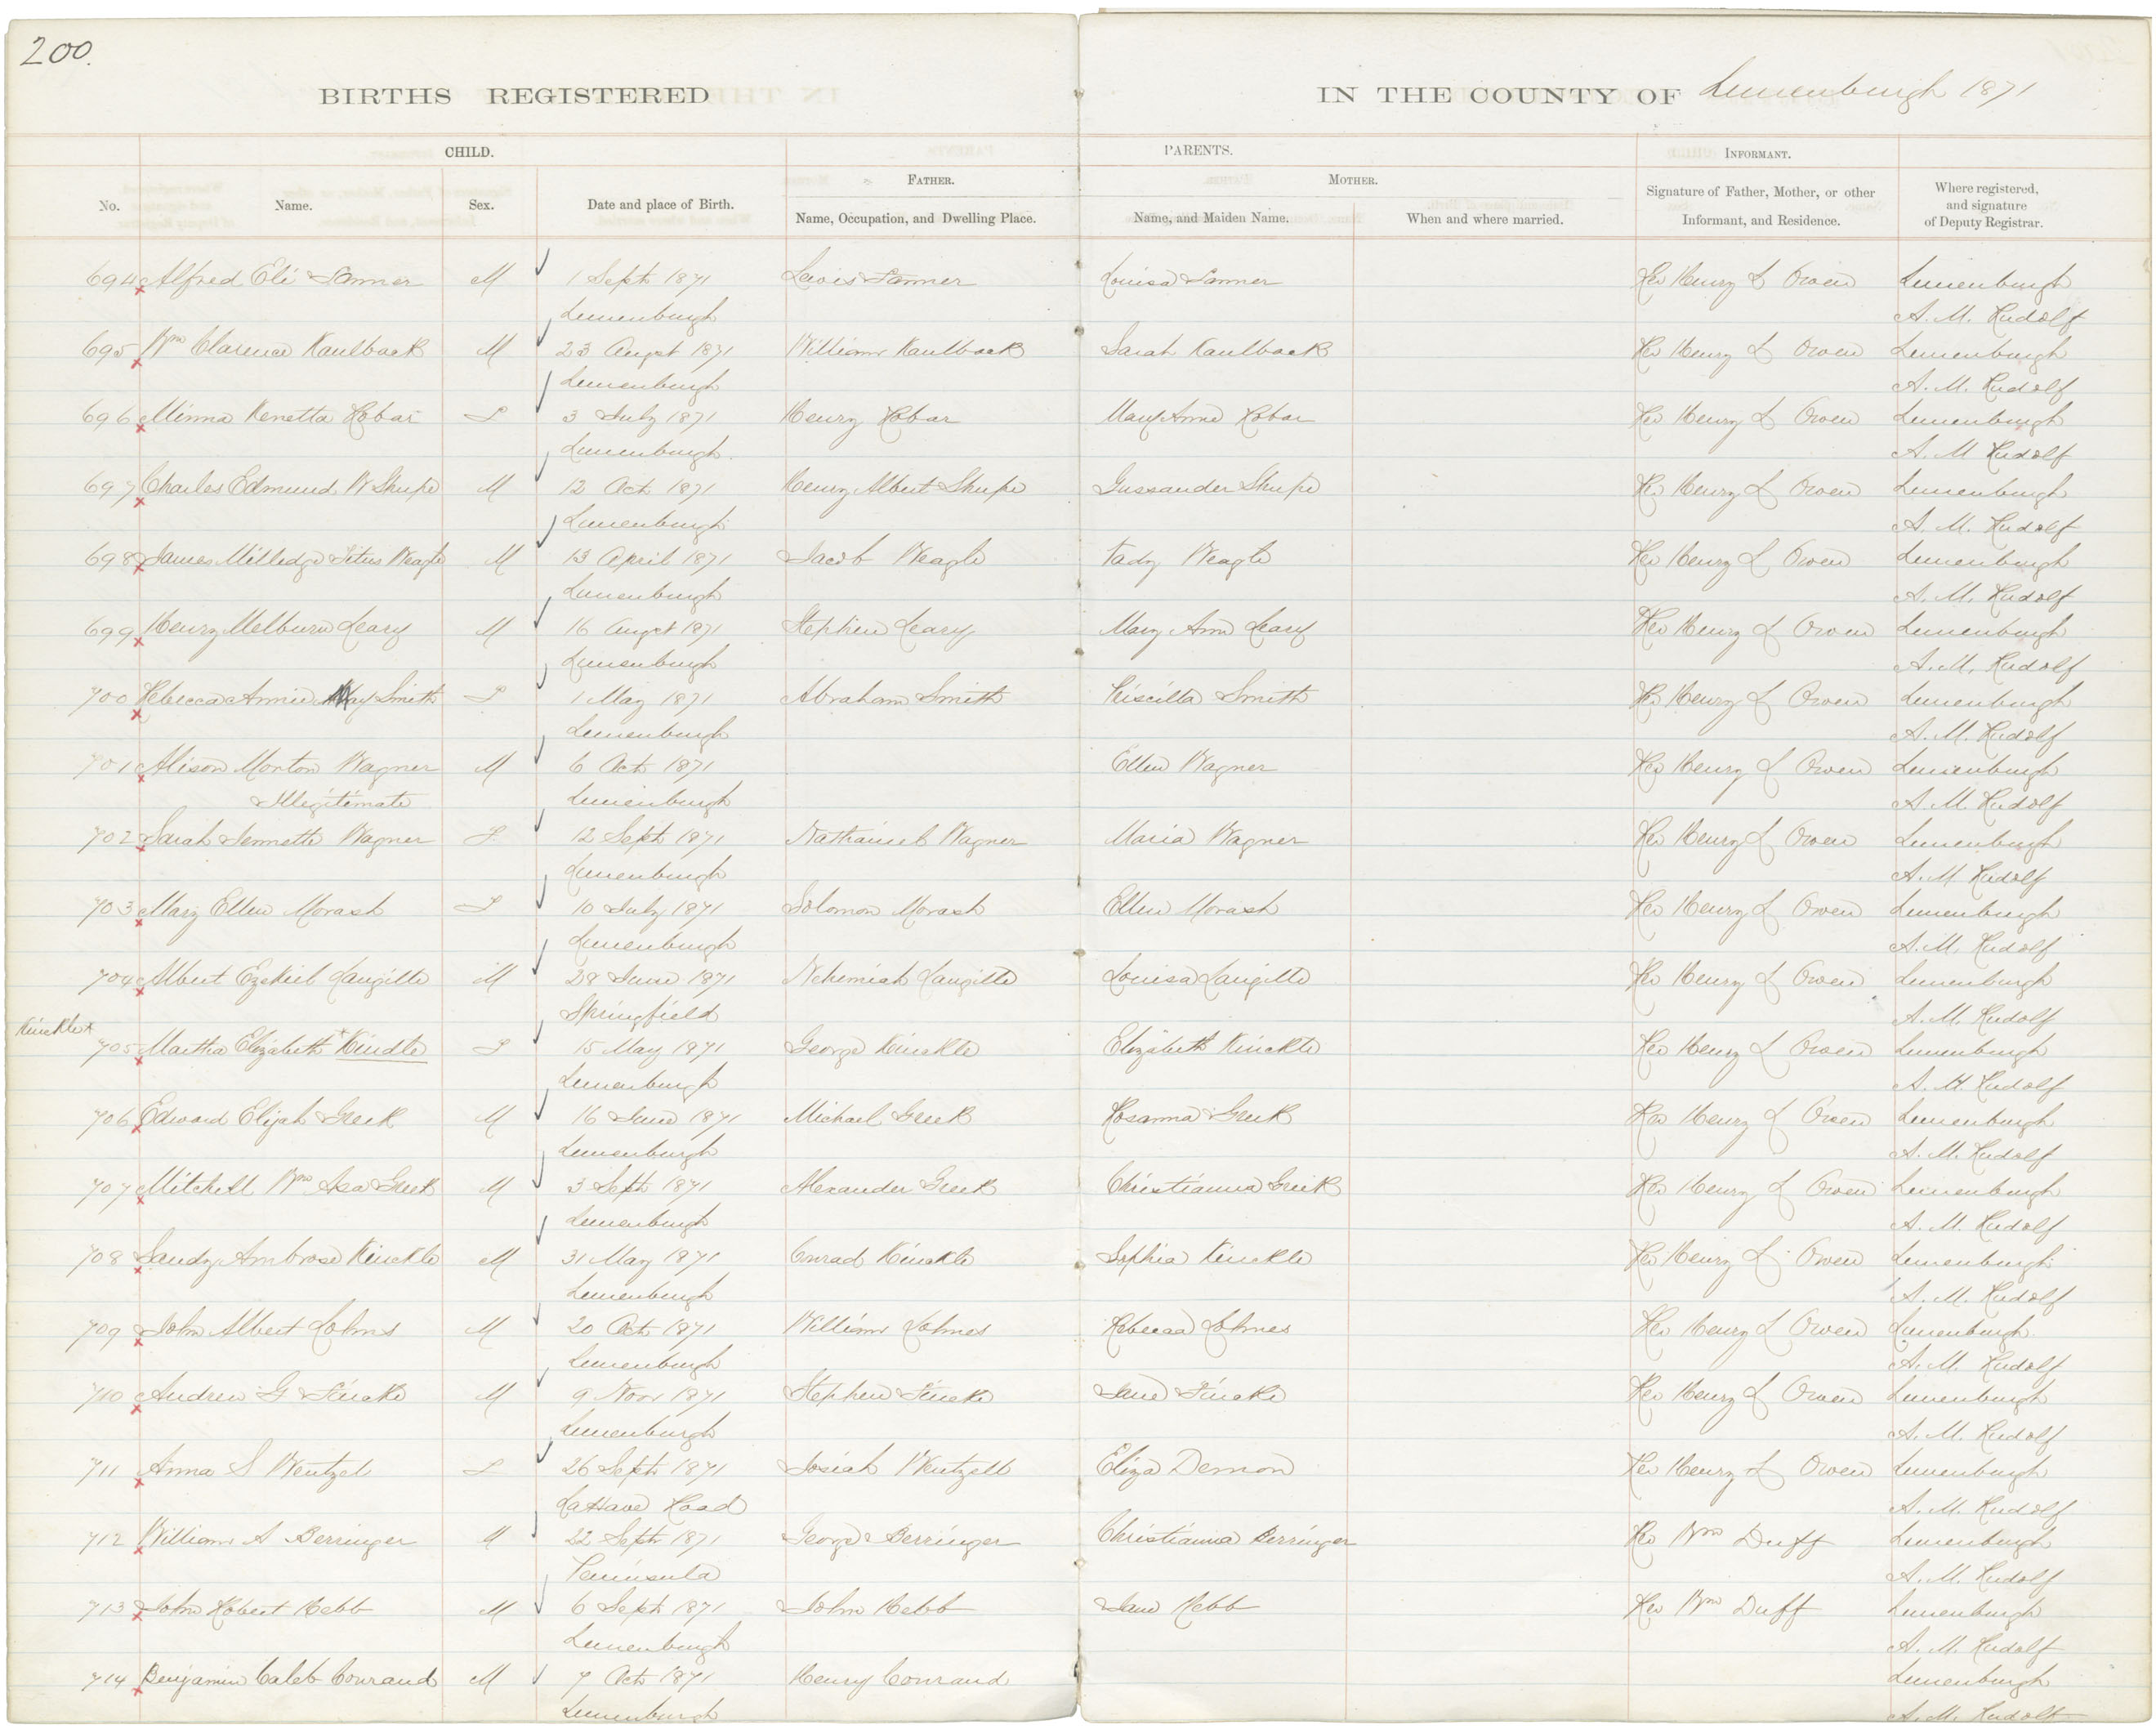 200.
BIRTHS REGISTERED IN THE COUNTY OF Lunenburgh 1871
CHILD. PARENTS. INFORMANT.
No. Name. Sex. Date and place of Birth. FATHER. Name, Occupation, and Dwelling Place. MOTHER. Name, and Maiden Name. When and where married. Signature of Father, Mother, or other Informant, and Residence. Where registered, and signature of Deputy Registrar.
694 Alfred Eli M 1 Sept 1871 Lewis Louisa Rev Henry L Owen Lunenburgh
Lunenburgh A. M. Rudolf
695 Wm Clarence Kaulback M 23 Augst 1871 William Kaulback Sarah Kaulback Rev Henry L Owen Lunenburgh
Lunenburgh A. M. Rudolf
696 Minna Renetta Hobar F 3 July 1871 Henry Hobar Mary Anne Hobar Rev Henry L Owen Lunenburgh
Lunenburgh A. M Rudolf
697 Charles Edmund W Shupe M 12 Oct 1871 Henry Albert Shupe Gussander Shupe Rev Henry L Owen Lunenburgh
Lunenburgh A. M. Rudolf
698 James Milledge Titus Weagle M 13 April 1871 Jacob Weagle Weagle Rev Henry L Owen Lunenburgh
Lunenburgh A. M. Rudolf
699 Henry Melburn Leary M 16 Augst 1871 Stephen Leary Mary Ann Leary Rev Henry L Owen Lunenburgh
Lunenburgh A. M. Rudolf
700 Rebecca Annie May Smith F 1 May 1871 Abraham Smith Priscilla Smith Rev Henry L Owen Lunenburgh
Lunenburgh A. M. Rudolf
701 Alison Morton Wagner M 6 Oct 1871 Ellen Wagner Rev Henry L Owen Lunenburgh
Illegitimate Lunenburgh A. M. Rudolf
702 Sarah Jennette Wagner F 12 Sept 1871 Nathaniel Wagner Maria Wagner Rev Henry L Owen Lunenburgh
Lunenburgh A. M. Rudolf
703 Mary Ellen Morash F 10 July 1871 Solomon Morash Ellen Morash Rev Henry L Owen Lunenburgh
Lunenburgh A. M. Rudolf
704 Albert Ezekiel Langille M 28 June 1871 Nehemiah Langille Louisa Langille Rev Henry L Owen Lunenburgh
Springfield A. M. Rudolf
Kinckle x
705 Martha Elizabeth x Kindle F 15 May 1871 George Kinckle Elizabeth Kinckle Rev Henry L Owen Lunenburgh
Lunenburgh A. M Rudolf
706 Edward Elijah Greek M 16 June 1871 Michael Greek Rosanna Greek Rev Henry L Owen Lunenburgh
Lunenburgh A. M. Rudolf
707 Mitchell Wm Asa Greek M 3 Sept 1871 Alexander Greek Christianna Greek Rev Henry L Owen Lunenburgh
Lunenburgh A. M. Rudolf
708 Sandy Ambrose Kinckle M 31 May 1871 Conrad Kinckle Sophia Kinckle Rev Henry L Owen Lunenburgh
Lunenburgh A. M. Rudolf
709 John Albert Lohnes M 20 Oct 1871 William Lohnes Rebecca Lohnes Rev Henry L Owen Lunenburgh
Lunenburgh A. M. Rudolf
710 Andrew G Fincke M 9 Novr 1871 Stephen Fincke Jane Fincke Rev Henry L Owen Lunenburgh
Lunenburgh A. M. Rudolf
711 Anna S Wentzel F 26 Sept 1871 Josiah Wentzell Eliza Demon Rev Henry L Owen Lunenburgh
LaHave Road A. M. Rudolf
712 William A Berringer M 22 Sept 1871 George Berringer Christianna Berringer Rev Wm Duff Lunenburgh
Peninsula A. M. Rudolf
713 John Robert Hebb M 6 Sept 1871 John Hebb Jane Hebb Rev Wm Duff Lunenburgh
Lunenburgh A. M. Rudolf
714 Benjamin Caleb Conrand M 7 Oct 1871 Henry Conrand Lunenburgh
Lunenburgh A. M. Rudolf